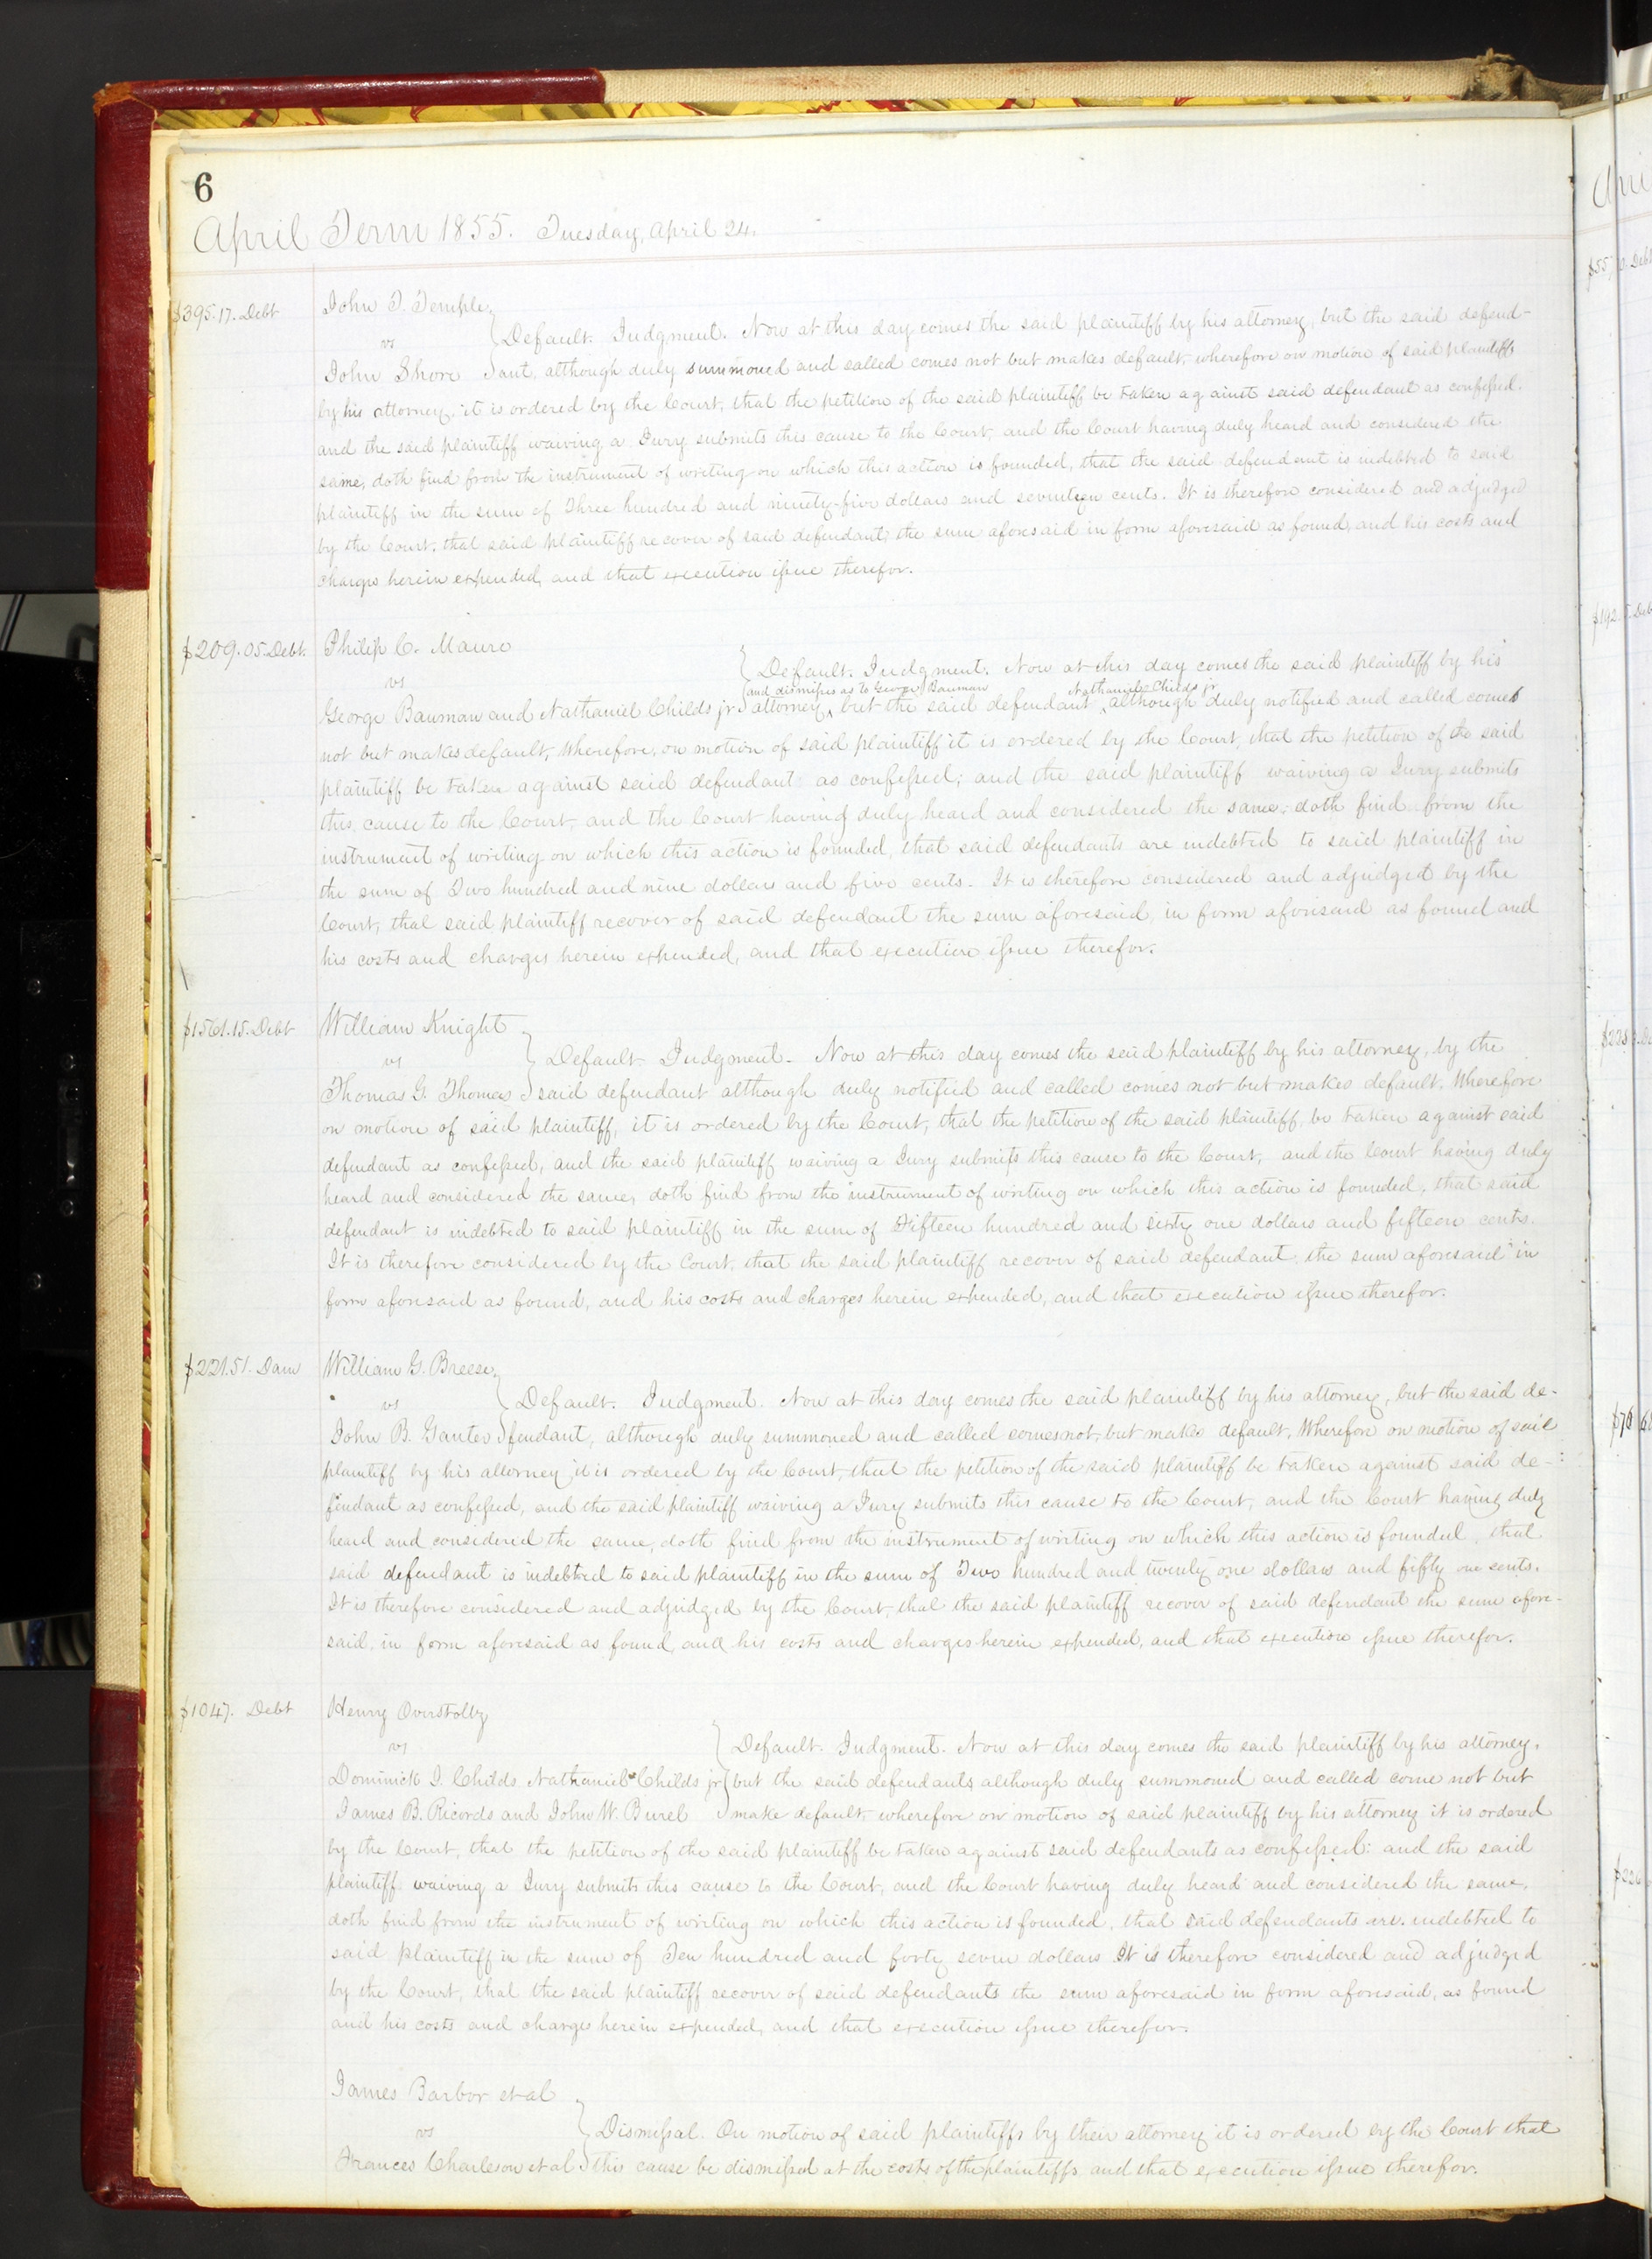 6
April Term 1855. Tuesday, April 24.
$395.17. Debt
John T. Temple
vs
Default. Judgment. Now at this day comes the said plaintiff by his attorney, but the said defend-
John Shore
ant, although duly summoned and called comes not but makes default, wherefore on motion of said plaintiff
by his attorney, it is ordered by the Court, that the petition of the said plaintiff be taken against said defendant as confessed.
and the said plaintiff waiving a Jury submits this cause to the Court, and the Court having duly heard and considered the
same, doth find from the instrument of writing on which this action is founded, that the said defendant is indebted to said
plaintiff in the sum of Three hundred and ninety-five dollars and seventeen cents. It is therefore considered and adjudged
by the Court, that said plaintiff recover of said defendant, the sum aforesaid in form aforesaid as found, and his costs and
charges herein expended, and that execution issue therefor.
$209.05. Debt.
Philip C. Mauro
vs
Default. Judgment. Now at this day comes the said plaintiff by his
and dismisses as to George Bauman
Nathaniel Childs jr
George Bauman and Nathaniel Childs jr
attorney, but the said defendant although duly notified and called comes
not but makes default, Wherefore, on motion of said plaintiff it is ordered by the Court, that the petition of the said
plaintiff be taken against said defendant as confessed; and the said plaintiff waiving a Jury submits
this cause to the Court, and the Court having duly heard and considered the same, doth find from the
instrument of writing on which this action is founded, that said defendants are indebted to said plaintiff in
the sum of Two hundred and nine dollars and five cents. It is therefore considered and adjudged by the
Court, that said plaintiff recover of said defendant the sum aforesaid, in form aforesaid as found and
his costs and charges herein expended, and that execution issue therefor.
$1561.15. Debt
William Knight
vs
Default. Judgment. Now at this day comes the said plaintiff by his attorney, by the
Thomas G. Thomas
said defendant although duly notified and called comes not but makes default. Wherefore
on motion of said plaintiff, it is ordered by the Court, that the petition of the said plaintiff, be taken against said
defendant as confessed, and the said plaintiff waiving a Jury submits this cause to the Court, and the Court having duly
heard and considered the same, doth find from the instrument of writing on which this action is founded, that said
defendant is indebted to said plaintiff in the sum of Fifteen hundred and sixty one dollars and fifteen cents.
It is therefore considered by the Court, that the said plaintiff recover of said defendant, the sum aforesaid in
form aforesaid as found, and his costs and charges herein expended, and that execution issue therefor.
$221.51. Dam
William G. Breese
vs
Default. Judgment. Now at this day comes the said plaintiff by his attorney, but the said de-
John B. Ganter
fendant, although duly summoned and called comes not, but makes default, Wherefore on motion of said
plaintiff by his attorney, it is ordered by the Court, that the petition of the said plaintiff be taken against said de-
fendant as confessed, and the said plaintiff waiving a Jury submits this cause to the Court, and the Court having duly
heard and considered the same, doth find from the instrument of writing on which this action is founded, that
said defendant is indebted to said plaintiff in the sum of Two hundred and twenty one dollars and fifty one cents.
It is therefore considered and adjudged by the Court, that the said plaintiff recover of said defendant the sum afore-
said, in form aforesaid as found, and his costs and charges herein expended, and that execution issue therefor.
$1047. Debt
Henry Overstolty
vs
Default. Judgment. Now at this day comes the said plaintiff by his attorney,
Dominick J. Childs, Nathaniel Childs jr
but the said defendants although duly summoned and called come not but
James B. Ricords and John W. Burel
make default, wherefore on motion of said plaintiff by his attorney it is ordered
by the Court, that the petition of the said plaintiff be taken against said defendants as confessed: and the said
plaintiff waiving a Jury submits this cause to the Court, and the Court having duly heard and considered the same,
doth find from the instrument of writing on which this action is founded, that said defendants are indebted to
said plaintiff in the sum of Ten hundred and forty seven dollars It is therefore considered and adjudged
by the Court, that the said plaintiff recover of said defendants the sum aforesaid in form aforesaid, as found
and his costs and charges herein expended, and that execution issue therefor.
James Barbor et al
vs
Dismissal. On motion of said plaintiffs by their attorney it is ordered by the Court that
Frances Charleson et al
this cause be dismissed at the costs of the plaintiffs and that execution issue therefor.